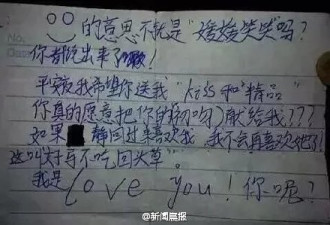 的意思不就是“嫒嫒笑笑”吗？
你都说出来了
平安夜我希望你送我“kiss和“精品”
你真的愿意把你的初吻）献给我？？？
如果 静回过来喜欢我，我不会再喜欢他了！
这叫好马不吃回头草”。
我是love you！你呢？
@新闻晨报